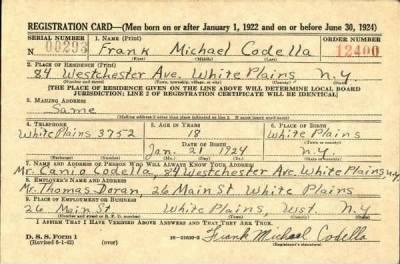 REGISTRATION CARD—(Men born on or after January 1, 1922 and on or before June 30, 1924)
SERIAL NUMBER 1. NAME (Print) ORDER NUMBER
N 00293 Frank Michael Codella 12400
(First) (Middle) (Last)
2. PLACE OF RESIDENCE (Print)
84 Westchester Ave. White Plains N.Y.
[THE PLACE OF RESIDENCE GIVEN ON THE LINE ABOVE WILL DETERMINE LOCAL BOARD
JURISDICTION; LINE 2 OF REGISTRATION CERTIFICATE WILL BE IDENTICAL]
3. MAILING ADDRESS
Same
4. TELEPHONE 5. AGE IN YEARS 6. PLACE OF BIRTH
White Plains 3752 18 White Plains
DATE OF BIRTH
Jan. 21 1924 N.Y.
(Exchange) (Number) (Mo.) (Day) (Yr.) (State or country)
7. NAME AND ADDRESS OF PERSON WHO WILL ALWAYS KNOW YOUR ADDRESS
Mr. Canio Codella, 84 Westchester Ave. White Plains N.Y.
8. EMPLOYER'S NAME AND ADDRESS
Mr. Thomas Doran, 26 Main St. White Plains
9. PLACE OF EMPLOYMENT OR BUSINESS
26 Main St White Plains, West. N.Y
(Number and street or R. F. D. number) (Town) (County) (State)
I AFFIRM THAT I HAVE VERIFIED ABOVE ANSWERS AND THAT THEY ARE TRUE.
D. S. S. Form 1
(Revised 6-1-42) (over) Frank Michael Codella
(Registrant's signature)